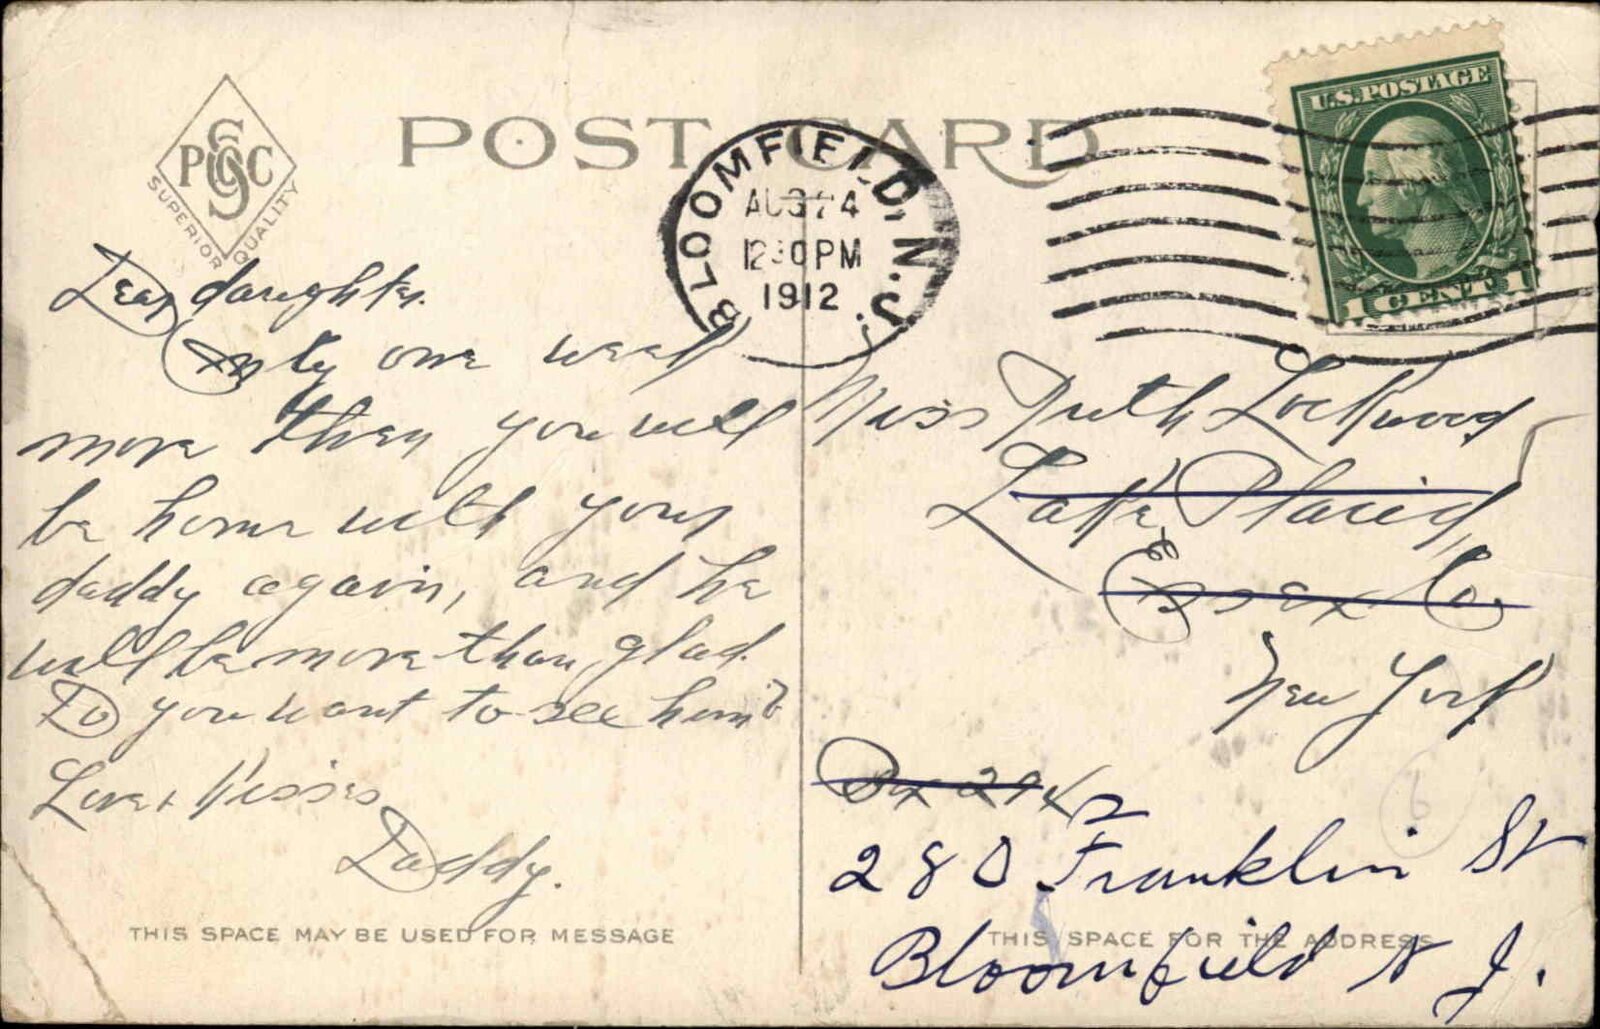 POST CARD
PSCC
SUPERIOR QUALITY
BLOOMFIELD, N.J.
AUG 24
12 30 PM
1912
U.S. POSTAGE
1 CENT 1
Dear daughter.
Only one week
more then you will
be home with your
daddy again, and he
will be more than glad.
Do you want to see him?
Love & Kisses
Daddy.
THIS SPACE MAY BE USED FOR MESSAGE
Miss Ruth Lockwood
Lake Placid,
Essex Co.
New York
Box 294
280 Franklin St
Bloomfield N J.
THIS SPACE FOR THE ADDRESS
6